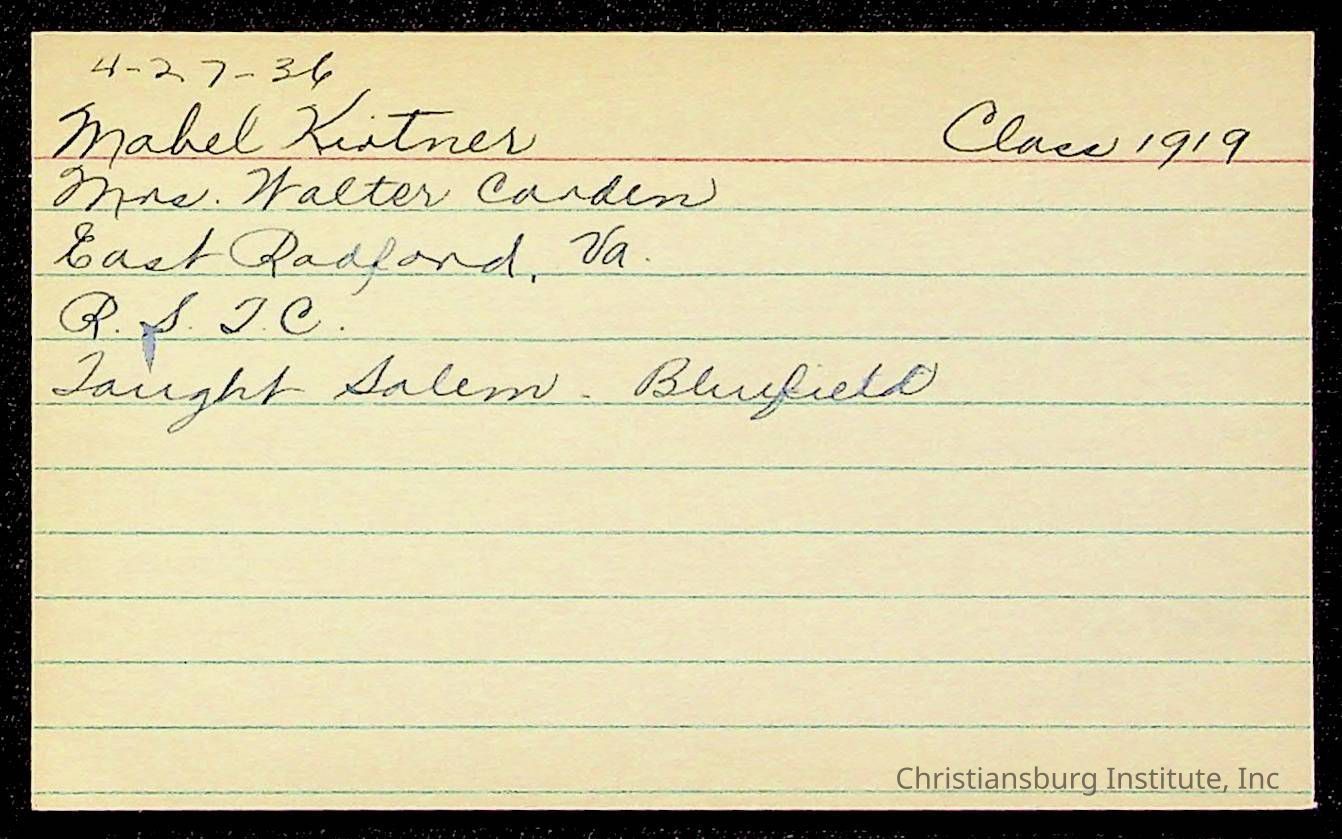 4-27-36
Mabel Kirtner Class 1919
Mrs. Walter Carden
East Radford, Va.
R. S. T. C.
Taught Salem - Bluefield
Christiansburg Institute, Inc